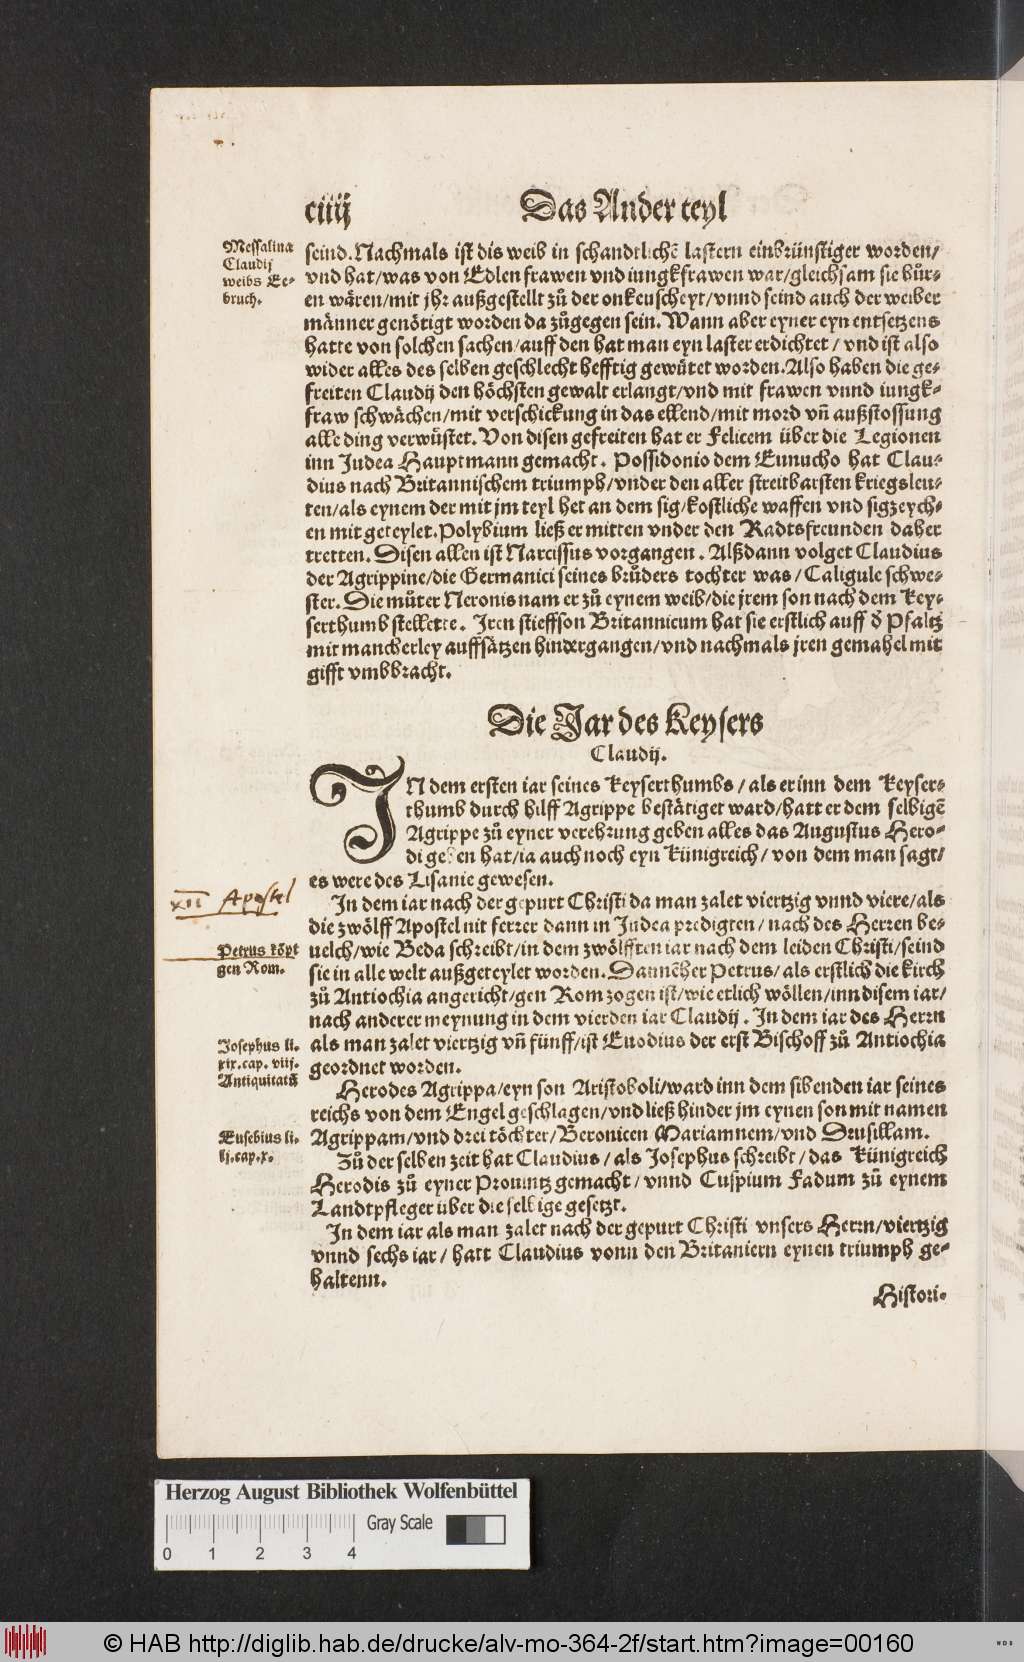 ciiij
Das Ander teyl
Messalina
Claudij
weibs Ee-
bruch.
seind. Nachmals ist dis weib in schandtlichẽ lastern einbrünstiger worden/
vnd hat/was von Edlen frawen vnd iungkfrawen war/gleichsam sie bůr-
en wären/mit jhr außgestellt zů der onkeuscheyt/vnnd seind auch der weiber
männer genötigt worden da zůgegen sein. Wann aber eyner eyn entsetzens
hatte von solchen sachen/auff den hat man eyn laster erdichtet/vnd ist also
wider alles des selben geschlecht hefftig gewůtet worden. Also haben die ge-
freiten Claudij den höchsten gewalt erlangt/vnd mit frawen vnnd iungk-
fraw schwächen/mit verschickung in das ellend/mit mord vñ außstossung
alle ding verwůstet. Von disen gefreiten hat er Felicem über die Legionen
inn Judea Hauptmann gemacht. Possidonio dem Eunucho hat Clau-
dius nach Britannischem triumph/vnder den aller streitbarsten kriegsleu-
ten/als eynem der mit jm teyl het an dem sig/kostliche waffen vnd sigzeych-
en mit geteylet. Polybium ließ er mitten vnder den Radtsfreunden daher
tretten. Disen allen ist Narcissus vorgangen. Alßdann volget Claudius
der Agrippine/die Germanici seines brůders tochter was/Caligule schwe-
ster. Die můter Neronis nam er zů eynem weib/die jrem son nach dem Key-
serthumb stellette. Iren stieffson Britannicum hat sie erstlich auff d̕ Pfaltz
mit mancherley auffsätzen hindergangen/vnd nachmals jren gemahel mit
gifft vmbbracht.
Die Jar des Keysers
Claudij.
IN dem ersten iar seines Keyserthumbs/als er inn dem Keyser-
thumb durch hilff Agrippe bestätiget ward/hatt er dem selbigẽ
Agrippe zů eyner verehrung geben alles das Augustus Hero-
di geben hat/ia auch noch eyn Künigreich/von dem man sagt/
es were des Lisanie gewesen.
xii Apostel
In dem iar nach der gepurt Christi da man zalet viertzig vnnd viere/als
die zwölff Apostel nit ferrer dann in Judea predigten/nach des Herren be-
Petrus köpt
gen Rom.
uelch/wie Beda schreibt/in dem zwölfften iar nach dem leiden Christi/seind
sie in alle welt außgeteylet worden. Dannẽher Petrus/als erstlich die kirch
zů Antiochia angericht/gen Rom zogen ist/wie etlich wöllen/inn disem iar/
nach anderer meynung in dem vierden iar Claudij. In dem iar des Herrn
Josephus li.
xix. cap. viij.
Antiquitatũ
als man zalet viertzig vñ fünff/ist Euodius der erst Bischoff zů Antiochia
geordnet worden.
Herodes Agrippa/eyn son Aristoboli/ward inn dem sibenden iar seines
reichs von dem Engel geschlagen/vnd ließ hinder jm eynen son mit namen
Eusebius li.
ij. cap. x.
Agrippam/vnd drei töchter/Beronicen Mariamnem/vnd Drusillam.
Zů der selben zeit hat Claudius/als Josephus schreibt/das Künigreich
Herodis zů eyner Prouintz gemacht/vnnd Cuspium Fadum zů eynem
Landtpfleger über die selbige gesetzt.
In dem iar als man zalet nach der gepurt Christi vnsers Herrn/viertzig
vnnd sechs iar/hatt Claudius vonn den Britaniern eynen triumph ge-
haltenn.
Histori-
Herzog August Bibliothek Wolfenbüttel
0 1 2 3 4
Gray Scale
© HAB http://diglib.hab.de/drucke/alv-mo-364-2f/start.htm?image=00160